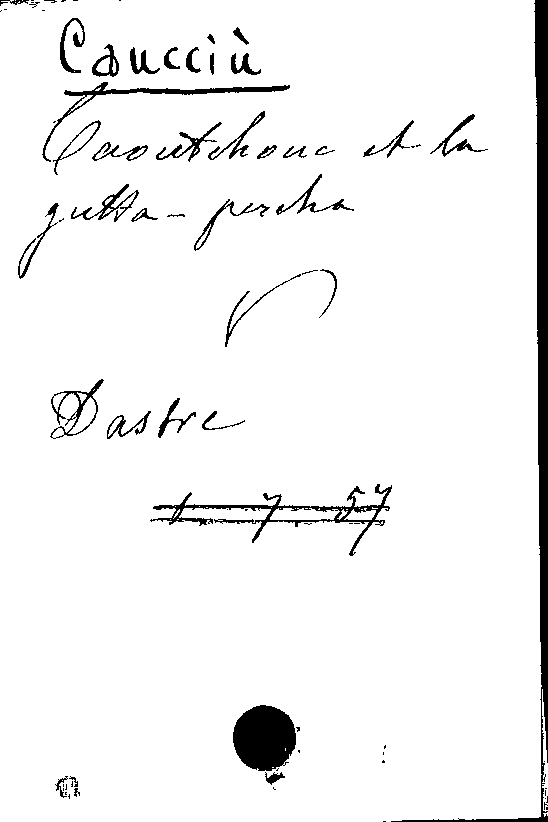 Caucciù
Caoutchouc et la
gutta-percha
V
Dastre
1 7 57